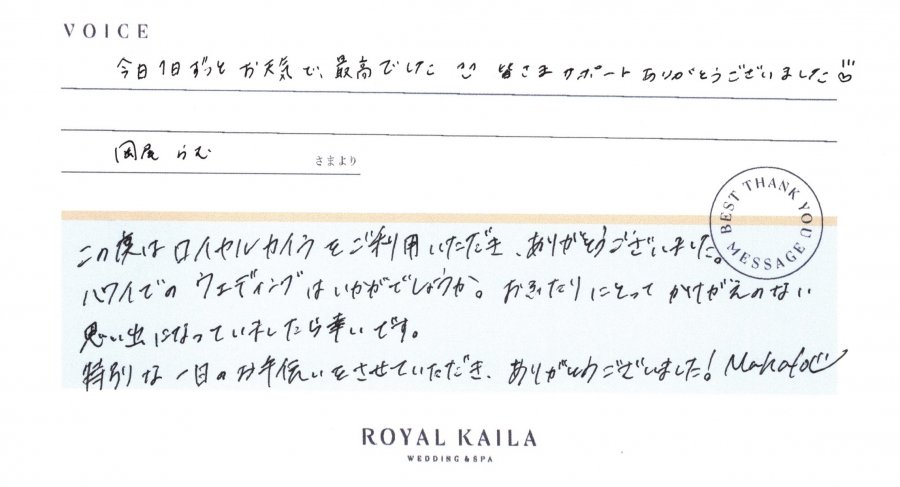 VOICE
今日1日ずっと お天気で、最高でした 皆さま サポート ありがとうございました
岡尾 らむ さまより
BEST THANK YOU MESSAGE
この度は ロイヤルカイラをご利用いただき、ありがとうございました。
ハワイでの ウェディングはいかがでしょうか。お二人にとって かけがえのない
思い出になっていましたら幸いです。
特別な一日のお手伝いをさせていただき、ありがとうございました! Mahalo
ROYAL KAILA
WEDDING & SPA